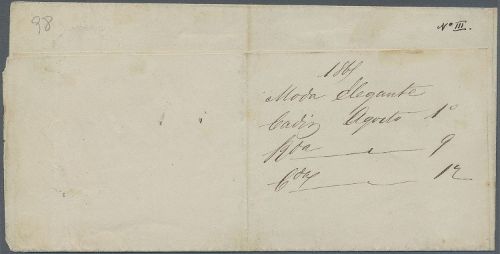 98
Nº III.
1861
Moda Elegante
Cadiz Agosto 1º
Rda 9
Cdz 12